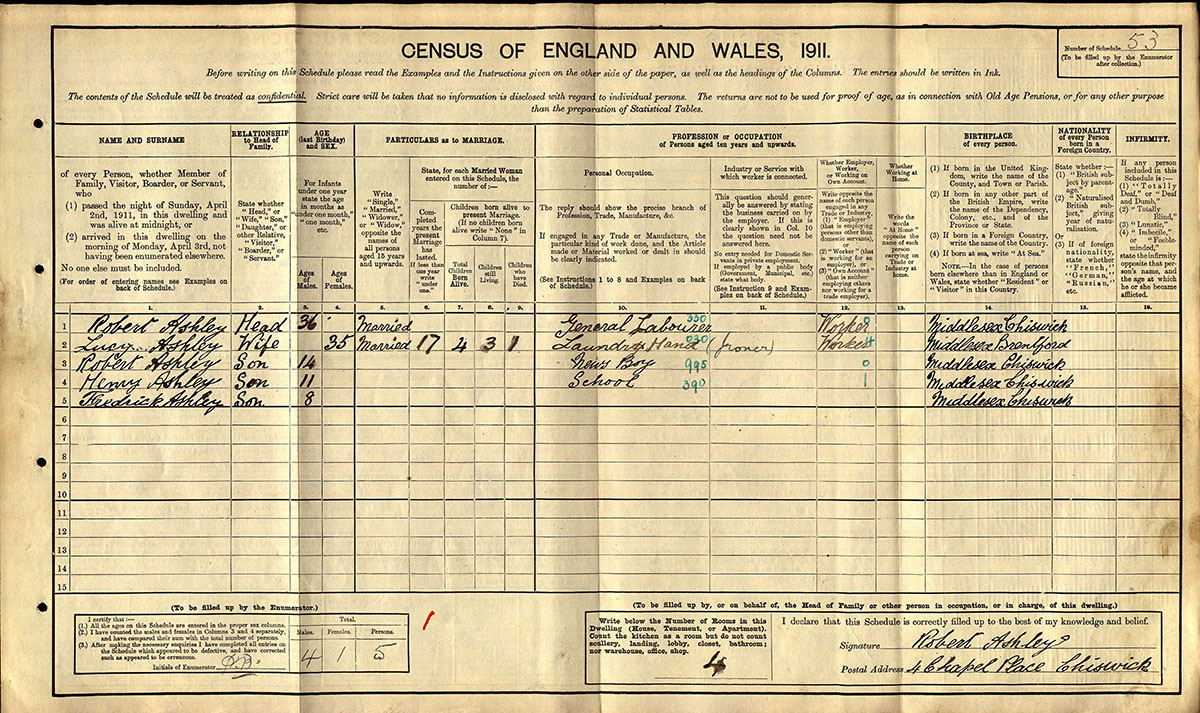 Number of Schedule 53
(To be filled up by the Enumerator
after collection.)
CENSUS OF ENGLAND AND WALES, 1911.
Before writing on this Schedule please read the Examples and the Instructions given on the other side of the paper, as well as the headings of the Columns. The entries should be written in Ink.
The contents of the Schedule will be treated as confidential. Strict care will be taken that no information is disclosed with regard to individual persons. The returns are not to be used for proof of age, as in connection with Old Age Pensions, or for any other purpose
than the preparation of Statistical Tables.
NAME AND SURNAME
of every Person, whether Member of
Family, Visitor, Boarder, or Servant,
who
(1) passed the night of Sunday, April
2nd, 1911, in this dwelling and
was alive at midnight, or
(2) arrived in this dwelling on the
morning of Monday, April 3rd, not
having been enumerated elsewhere.
No one else must be included.
(For order of entering names see Examples on
back of Schedule.)
RELATIONSHIP
to Head of
Family.
State whether
"Head," or
"Wife," "Son,"
"Daughter," or
other Relative,
"Visitor,"
"Boarder," or
"Servant."
AGE
(last Birthday)
and SEX.
For Infants
under one year
state the age
in months as
"under one month,"
"one month,"
etc.
Ages
of
Males.
Ages
of
Females.
PARTICULARS as to MARRIAGE.
Write
"Single,"
"Married,"
"Widower,"
or "Widow,"
opposite the
names of
all persons
aged 15 years
and upwards.
State, for each Married Woman
entered on this Schedule, the
number of:—
Completed
years the
present
Marriage
has
lasted.
If less than
one year
write
"under
one."
Children born alive to
present Marriage.
(If no children born
alive write "None" in
Column 7).
Total
Children
Born
Alive.
Children
still
Living.
Children
who
have
Died.
PROFESSION or OCCUPATION
of Persons aged ten years and upwards.
Personal Occupation.
The reply should show the precise branch of
Profession, Trade, Manufacture, &c.
If engaged in any Trade or Manufacture, the
particular kind of work done, and the Article
made or Material worked or dealt in should
be clearly indicated.
(See Instructions 1 to 8 and Examples on back
of Schedule.)
Industry or Service with
which worker is connected.
This question should gener-
ally be answered by stating
the business carried on by
the employer. If this is
clearly shown in Col. 10
the question need not be
answered here.
No entry needed for Domestic Ser-
vants in private employment.
If employed by a public body
(Government, Municipal, etc.)
state what body.
(See Instruction 9 and Exam-
ples on back of Schedule.)
Whether Employer,
Worker,
or Working on
Own Account.
Write opposite the
name of each person
engaged in any
Trade or Industry,
(1) "Employer"
(that is employing
persons other than
domestic servants),
or
(2) "Worker" (that
is working for an
employer), or
(3) "Own Account"
(that is neither
employing others
nor working for a
trade employer).
Whether
Working at
Home.
Write the
words
"At Home"
opposite the
name of each
person
carrying on
Trade or
Industry at
home.
BIRTHPLACE
of every person.
(1) If born in the United King-
dom, write the name of the
County, and Town or Parish.
(2) If born in any other part of
the British Empire, write
the name of the Dependency,
Colony, etc., and of the
Province or State.
(3) If born in a Foreign Country,
write the name of the Country.
(4) If born at sea, write "At Sea."
NOTE.—In the case of persons
born elsewhere than in England or
Wales, state whether "Resident" or
"Visitor" in this Country.
NATIONALITY
of every Person
born in a
Foreign Country.
State whether:—
(1) "British
subject by
parent-
age,"
(2) "Naturalised
British sub-
ject," giving
year of natu-
ralisation.
Or
(3) If of foreign
nationality,
state whether
"French,"
"German,"
"Russian,"
etc.
INFIRMITY.
If any person
included in this
Schedule is:—
(1) "Totally
Deaf," or "Deaf
and Dumb,"
(2) "Totally
Blind,"
(3) "Lunatic,"
(4) "Imbecile,"
or "Feeble-
minded,"
state the infirmity
opposite that per-
son's name, and
the age at which
he or she became
afflicted.
1. 2. 3. 4. 5. 6. 7. 8. 9. 10. 11. 12. 13. 14. 15. 16.
1 Robert Ashley Head 36 Married General Labourer 330 Worker Middlesex Chiswick
2 Lucy Ashley Wife 35 Married 17 4 3 1 Laundry Hand 030 (Ironer) Worker Middlesex Brentford
3 Robert Ashley Son 14 News Boy 995 0 Middlesex Chiswick
4 Henry Ashley Son 11 School 390 1 Middlesex Chiswick
5 Fredrick Ashley Son 8 Middlesex Chiswick
6
7
8
9
10
11
12
13
14
15
(To be filled up by the Enumerator.)
I certify that:—
(1.) All the ages on this Schedule are entered in the proper sex columns.
(2.) I have counted the males and females in Columns 3 and 4 separately,
and have compared their sum with the total number of persons.
(3.) After making the necessary enquiries I have completed all entries on
the Schedule which appeared to be defective, and have corrected
such as appeared to be erroneous.
Initials of Enumerator
Total.
Males. Females. Persons.
4 1 5
(To be filled up by, or on behalf of, the Head of Family or other person in occupation, or in charge, of this dwelling.)
Write below the Number of Rooms in this
Dwelling (House, Tenement, or Apartment).
Count the kitchen as a room but do not count
scullery, landing, lobby, closet, bathroom;
nor warehouse, office, shop.
4
I declare that this Schedule is correctly filled up to the best of my knowledge and belief.
Signature Robert Ashley
Postal Address 4 Chapel Place Chiswick